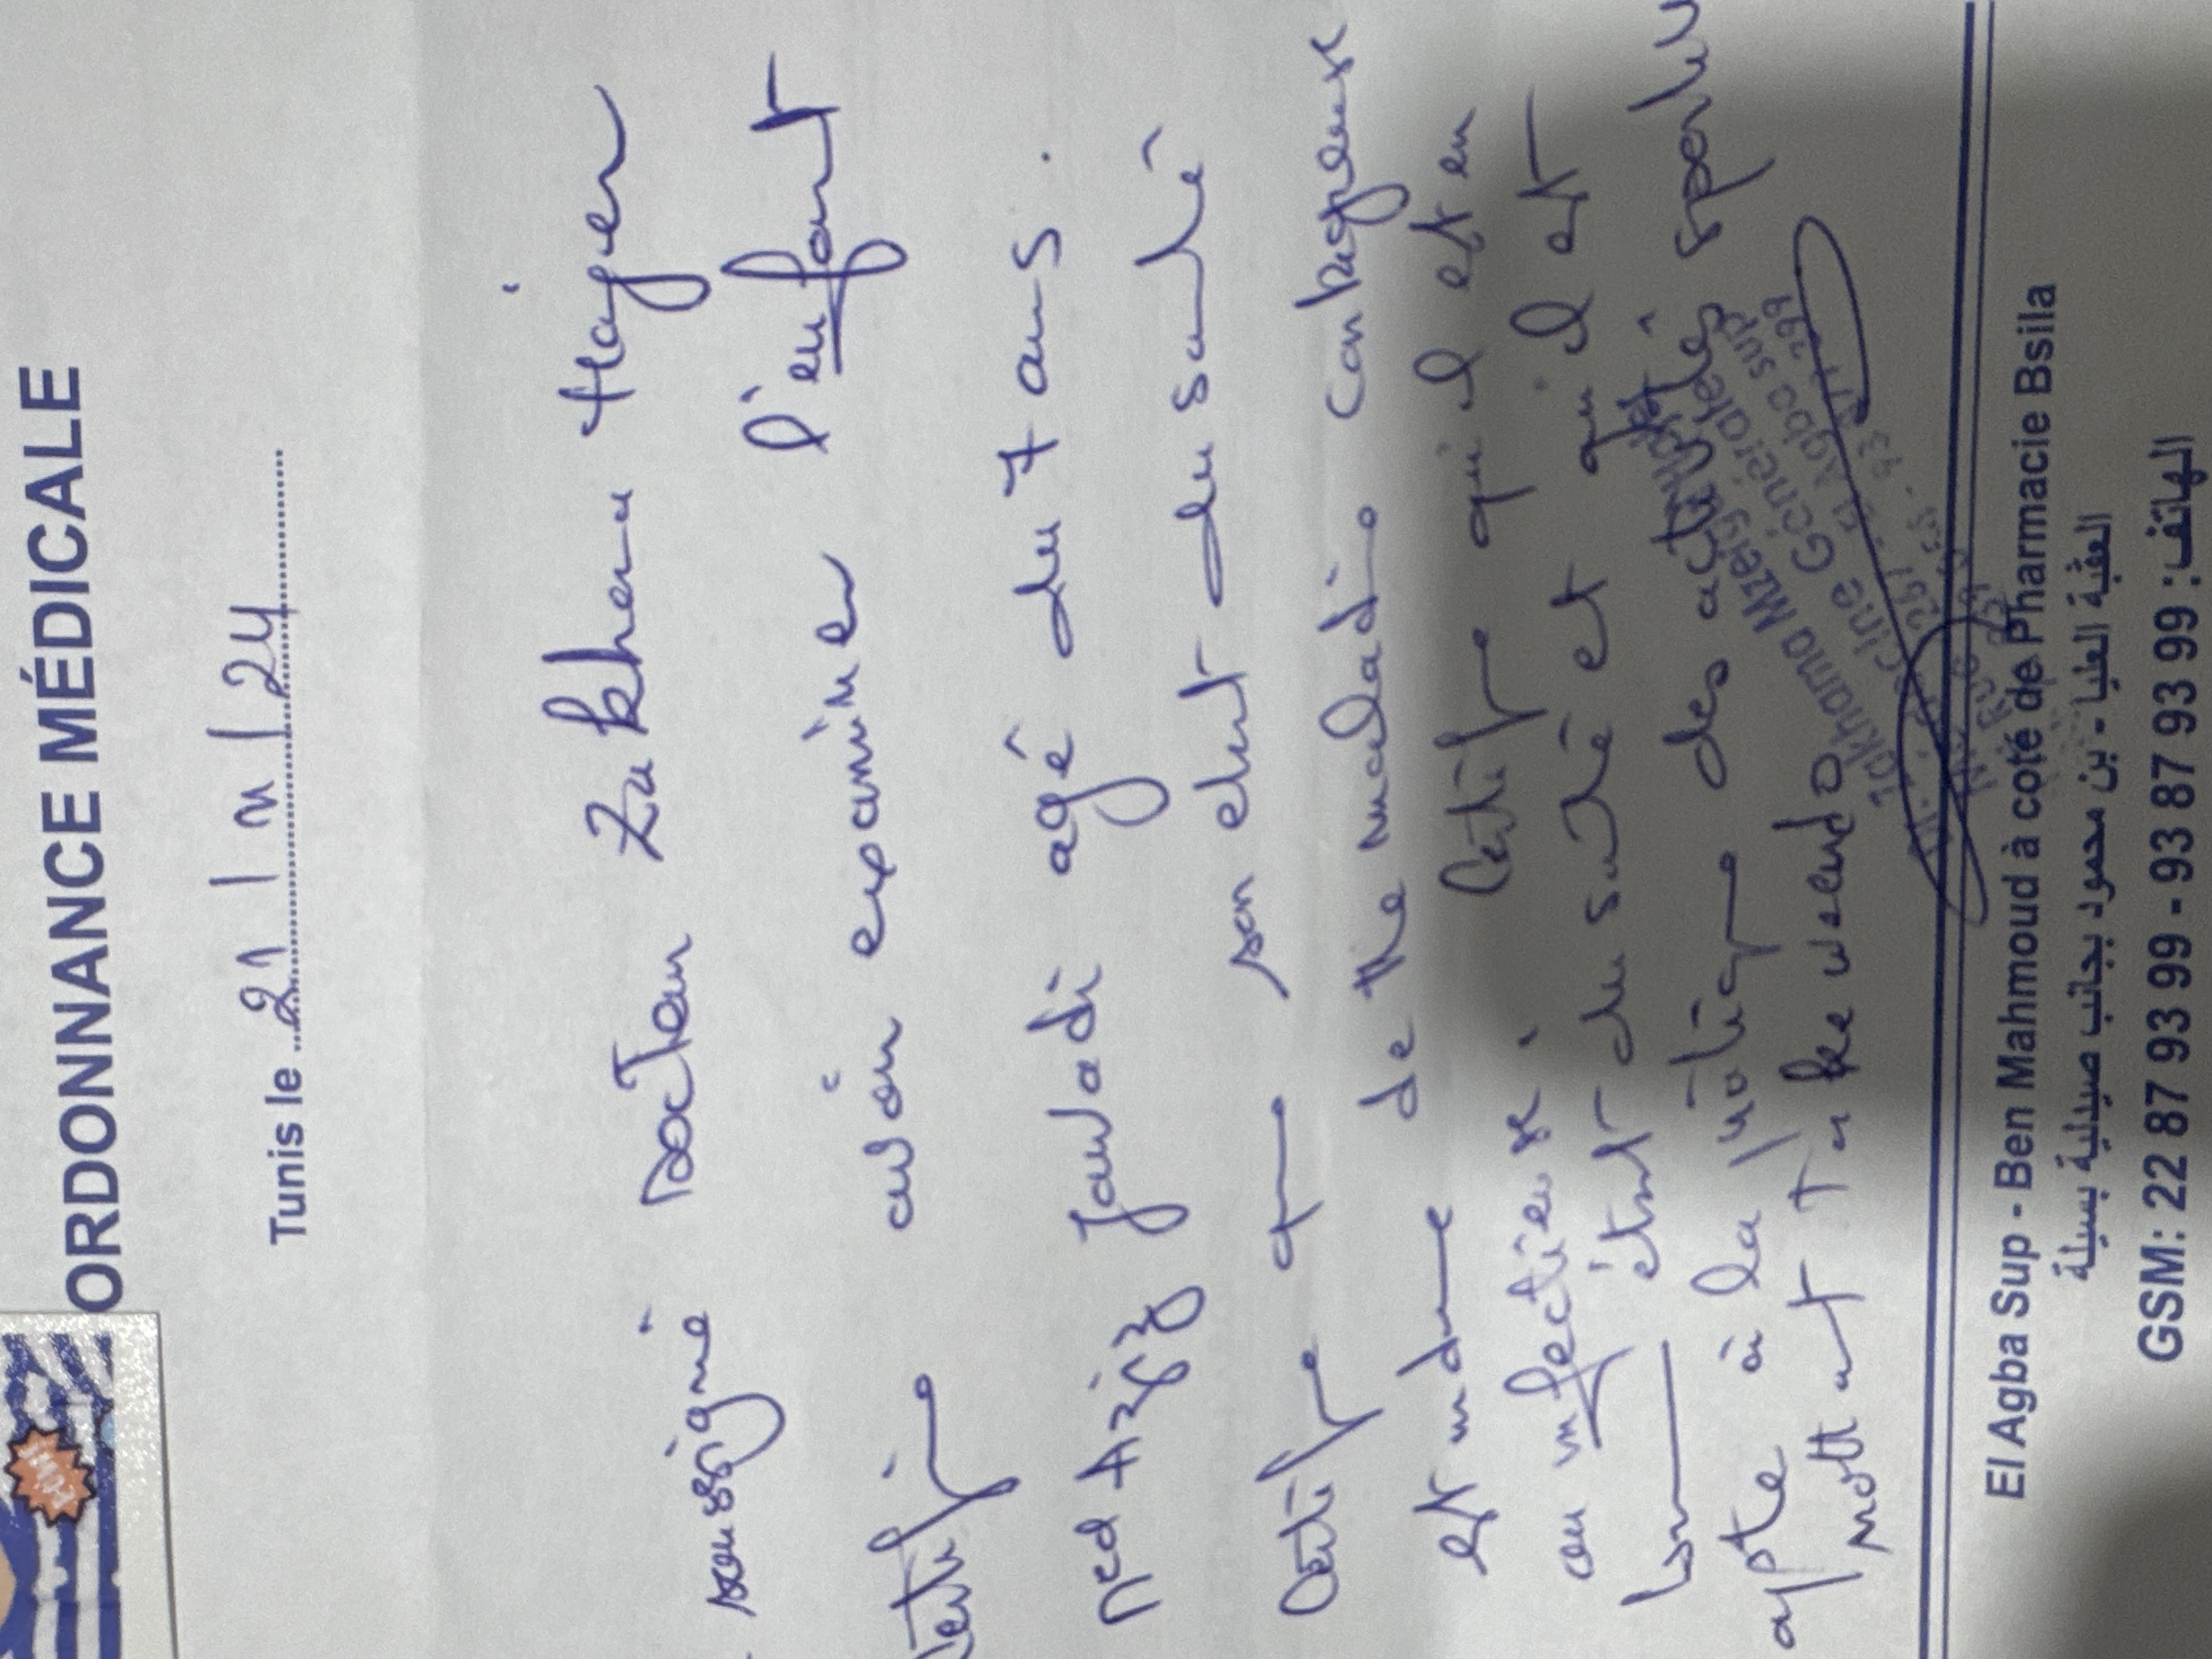 ORDONNANCE MÉDICALE
Tunis le 21 / 11 / 24
soussigné Docteur Hajer
Certifie avoir examiné l'enfant
Med Aziz Jawadi agé de 7 ans.
Certifie que son état de santé
est indemne de tte maladie contagieuse
ou infectieuse. Certifie qu'il est en
bon état de santé et qu'il est
apte à la pratique des activités sportives
notamment Taekwendo
Médecine Générale
El Agba Sup - Ben Mahmoud à coté de Pharmacie Bsila
العقبة العليا - بن محمود بجانب صيدلية بسيلة
GSM: 22 87 93 99 - 93 87 93 99 :الهاتف